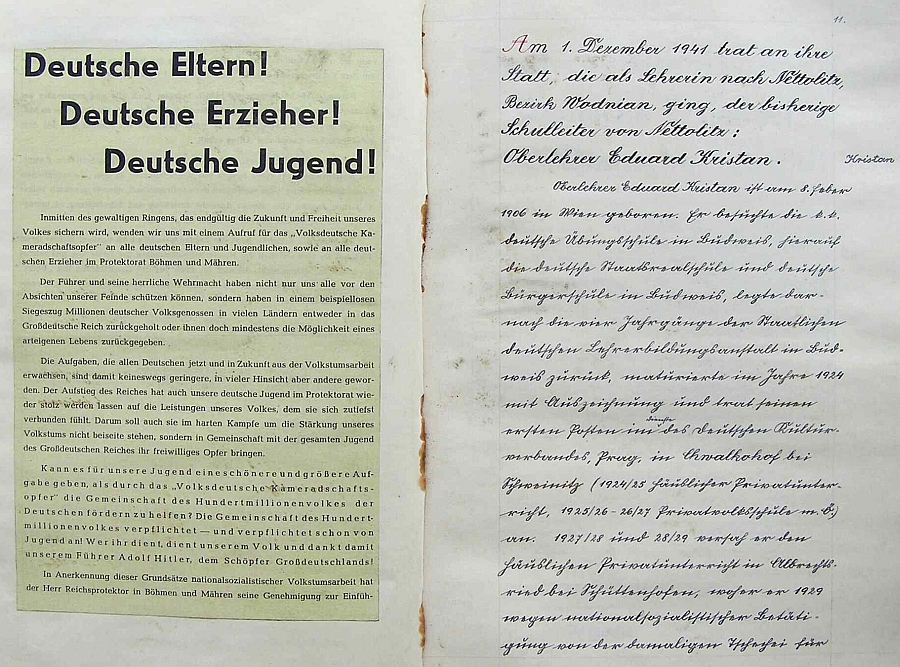 Deutsche Eltern!
Deutsche Erzieher!
Deutsche Jugend!
Inmitten des gewaltigen Ringens, das endgültig die Zukunft und Freiheit unseres
Volkes sichern wird, wenden wir uns mit einem Aufruf für das „Volksdeutsche Ka-
meradschaftsopfer" an alle deutschen Eltern und Jugendlichen, sowie an alle deut-
schen Erzieher im Protektorat Böhmen und Mähren.
Der Führer und seine herrliche Wehrmacht haben nicht nur uns alle vor den
Absichten unserer Feinde schützen können, sondern haben in einem beispiellosen
Siegeszug Millionen deutscher Volksgenossen in vielen Ländern entweder in das
Großdeutsche Reich zurückgeholt oder ihnen doch mindestens die Möglichkeit eines
arteigenen Lebens zurückgegeben.
Die Aufgaben, die allen Deutschen jetzt und in Zukunft aus der Volkstumsarbeit
erwachsen, sind damit keineswegs geringere, in vieler Hinsicht aber andere gewor-
den. Der Aufstieg des Reiches hat auch unsere deutsche Jugend im Protektorat wie-
der stolz werden lassen auf die Leistungen unseres Volkes, dem sie sich zutiefst
verbunden fühlt. Darum soll auch sie im harten Kampfe um die Stärkung unseres
Volkstums nicht beiseite stehen, sondern in Gemeinschaft mit der gesamten Jugend
des Großdeutschen Reiches ihr freiwilliges Opfer bringen.
Kann es für unsere Jugend eine schönere und größere Auf-
gabe geben, als durch das „Volksdeutsche Kameradschafts-
opfer" die Gemeinschaft des Hundertmillionenvolkes der
Deutschen fördern zu helfen? Die Gemeinschaft des Hundert-
millionenvolkes verpflichtet — und verpflichtet schon von
Jugend an! Wer ihr dient, dient unserem Volk und dankt damit
unserem Führer Adolf Hitler, dem Schöpfer Großdeutschlands!
In Anerkennung dieser Grundsätze nationalsozialistischer Volkstumsarbeit hat
der Herr Reichsprotektor in Böhmen und Mähren seine Genehmigung zur Einfüh-
11.
Am 1. Dezember 1941 trat an ihre
Statt, die als Lehrerin nach Nettolitz,
Bezirk Wodnian, ging, der bisherige
Schulleiter von Nettolitz:
Oberlehrer Eduard Kristan.
Kristan
Oberlehrer Eduard Kristan ist am 8. Feber
1906 in Wien geboren. Er besuchte die k.k.
deutsche Übungsschule in Budweis, hierauf
die deutsche Staatsrealschule und deutsche
Bürgerschule in Budweis, legte dar-
nach die vier Jahrgänge der Staatlichen
deutschen Lehrerbildungsanstalt in Bud-
weis zurück, maturierte im Jahre 1924
mit Auszeichnung und trat seinen
ersten Posten im Dienste des Deutschen Kultur-
verbandes, Prag, in Chwalkohof bei
Schweinitz (1924/25 häuslicher Privatunter-
richt, 1925/26-26/27 Privatvolksschule m. Ö.)
an. 1927/28 und 28/29 versah er den
häuslichen Privatunterricht in Albrechts-
ried bei Schüttenhofen, woher er 1929
wegen nationalsozialistischer Betäti-
gung von der damaligen Tschechei für